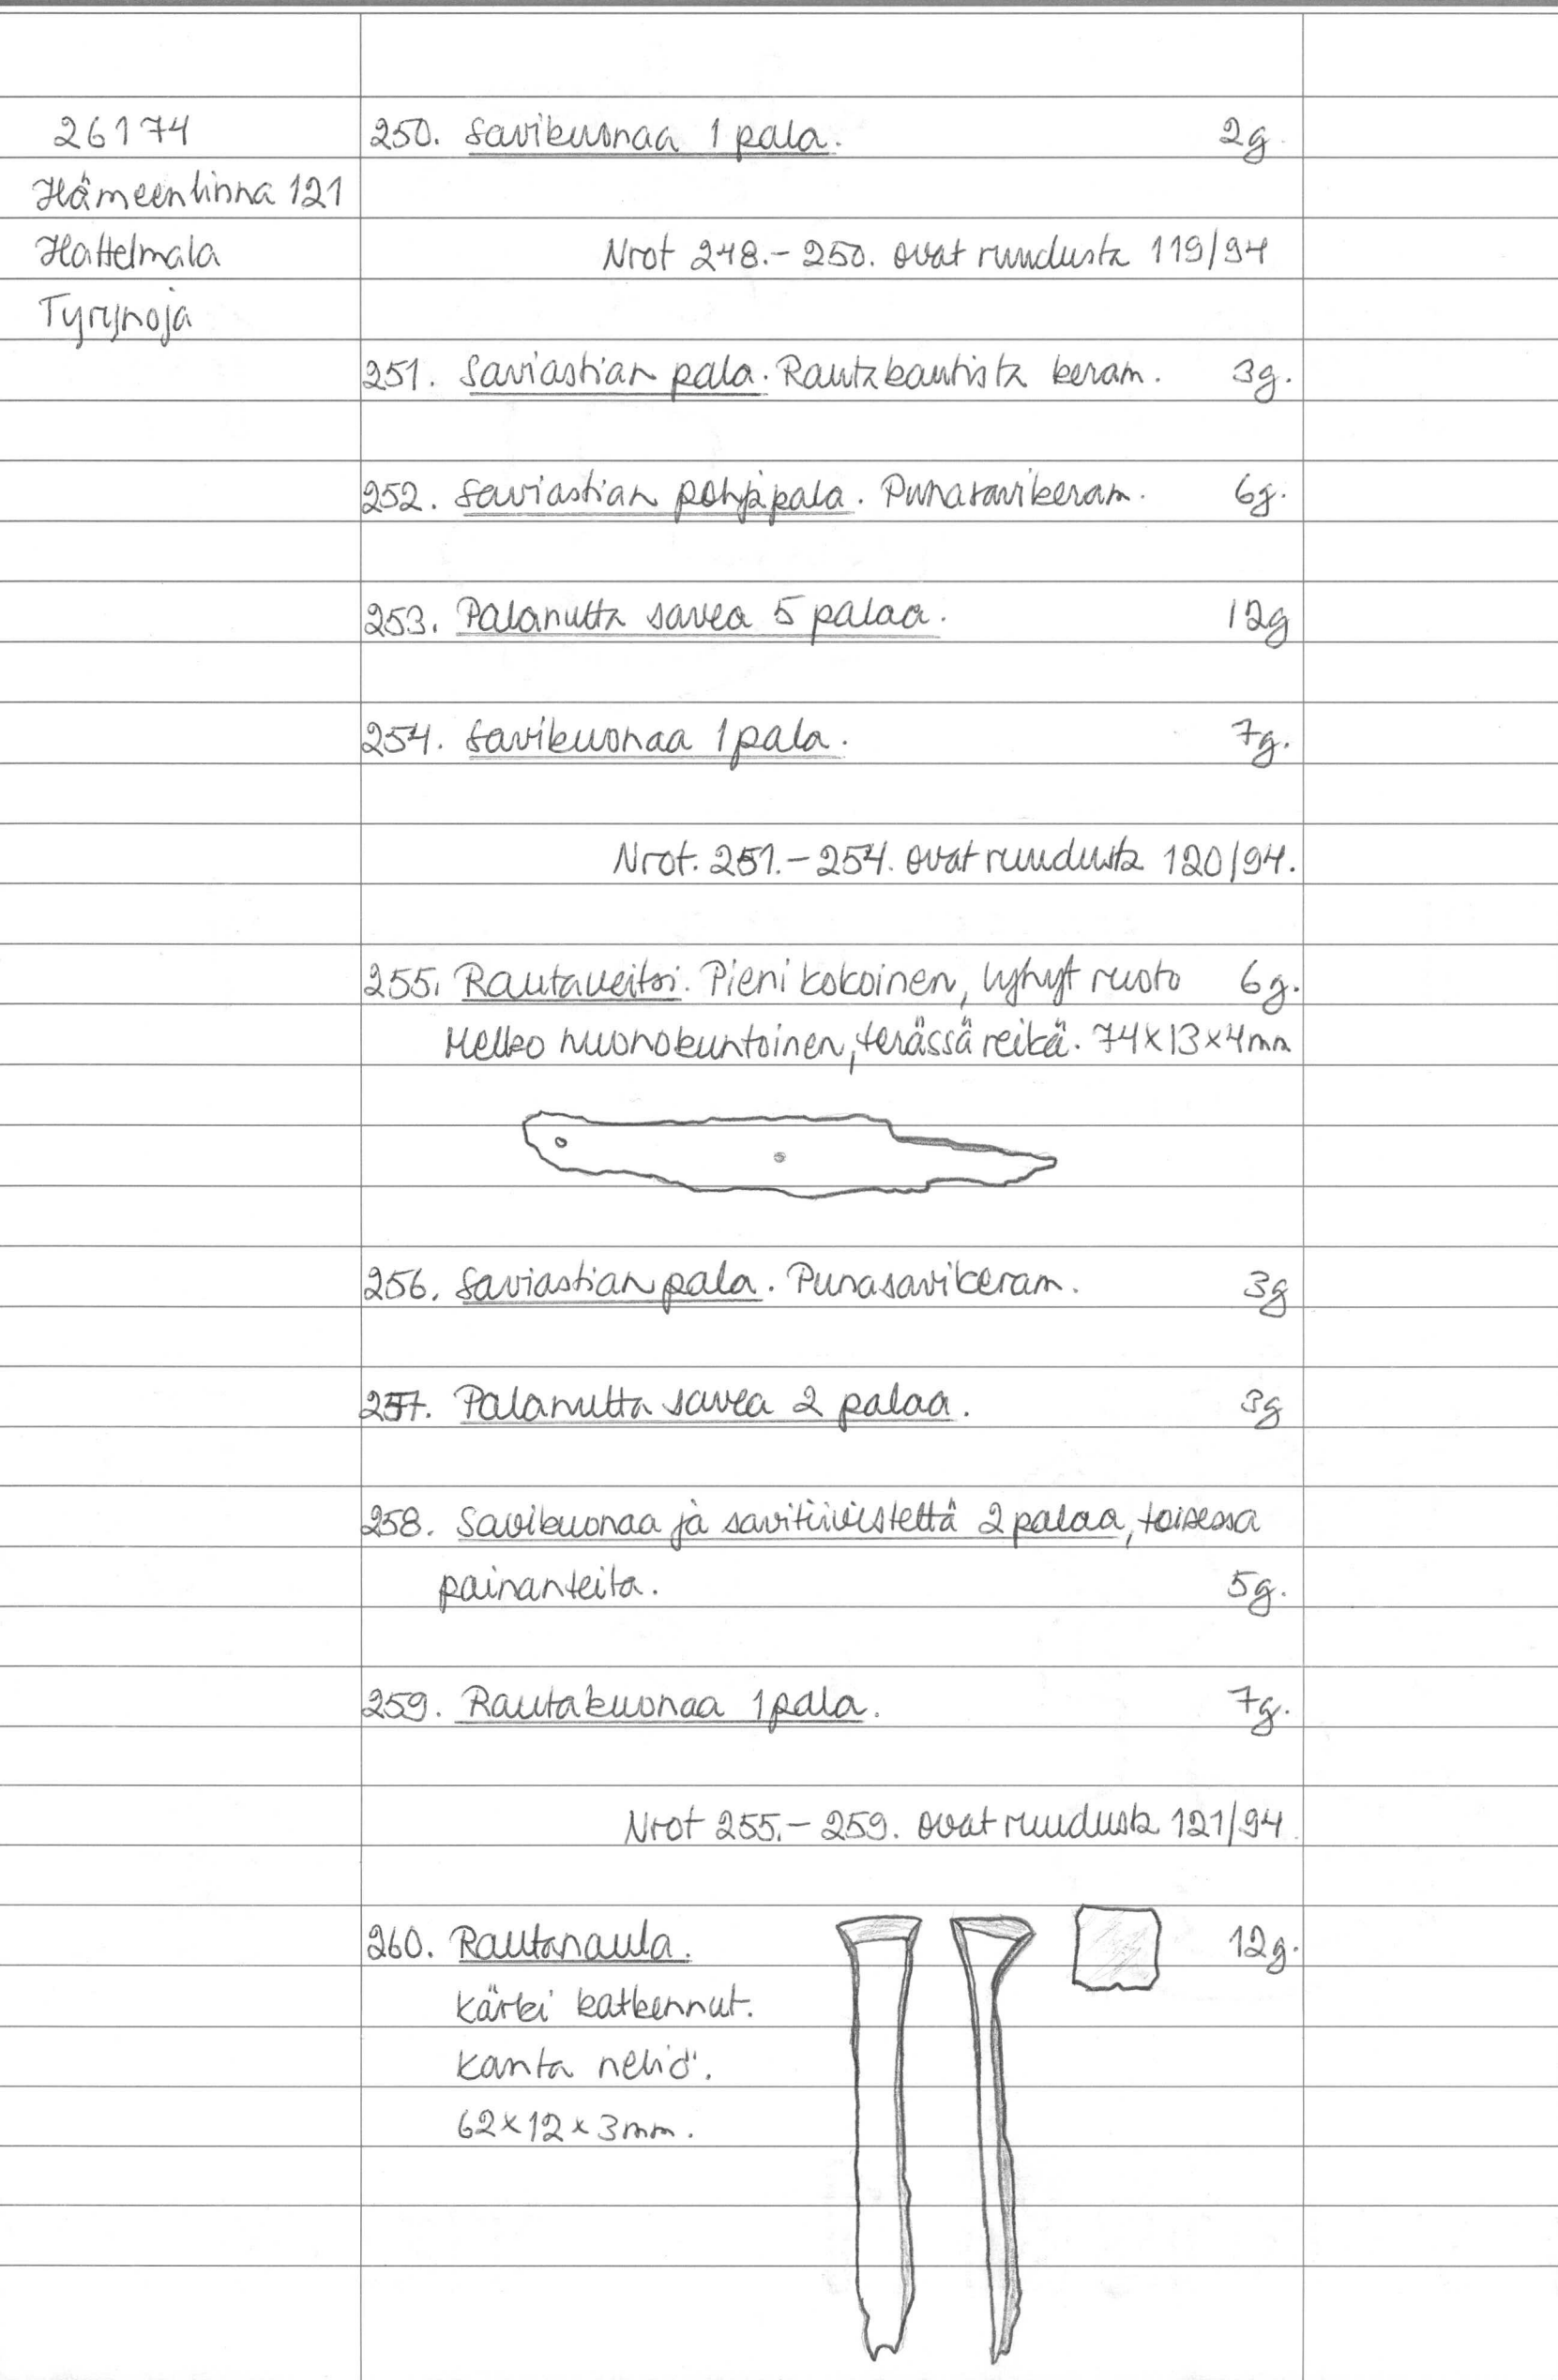 26174
Hämeenlinna 121
Hattelmala
Tyrynoja
250. Savikuonaa 1 pala. 2g.
Nrot 248.-250. ovat ruudusta 119/94
251. Saviastian pala. Rautakautista keram. 3g.
252. Saviastian pohjapala. Punasavikeram. 6g.
253. Palanutta savea 5 palaa. 12g
254. Savikuonaa 1 pala. 7g.
Nrot. 251.-254. ovat ruudusta 120/94.
255. Rautaveitsi. Pienikokoinen, lyhyt ruoto 6g.
Melko huonokuntoinen, terässä reikä. 74x13x4mm
256. Saviastian pala. Punasavikeram. 3g
257. Palanutta savea 2 palaa. 3g
258. Savikuonaa ja savitiivistettä 2 palaa, toisessa
painanteita. 5g.
259. Rautakuonaa 1 pala. 7g.
Nrot 255.-259. ovat ruudusta 121/94.
260. Rautanaula. 12g.
Kärki katkennut.
Kanta neliö.
62x12x3mm.